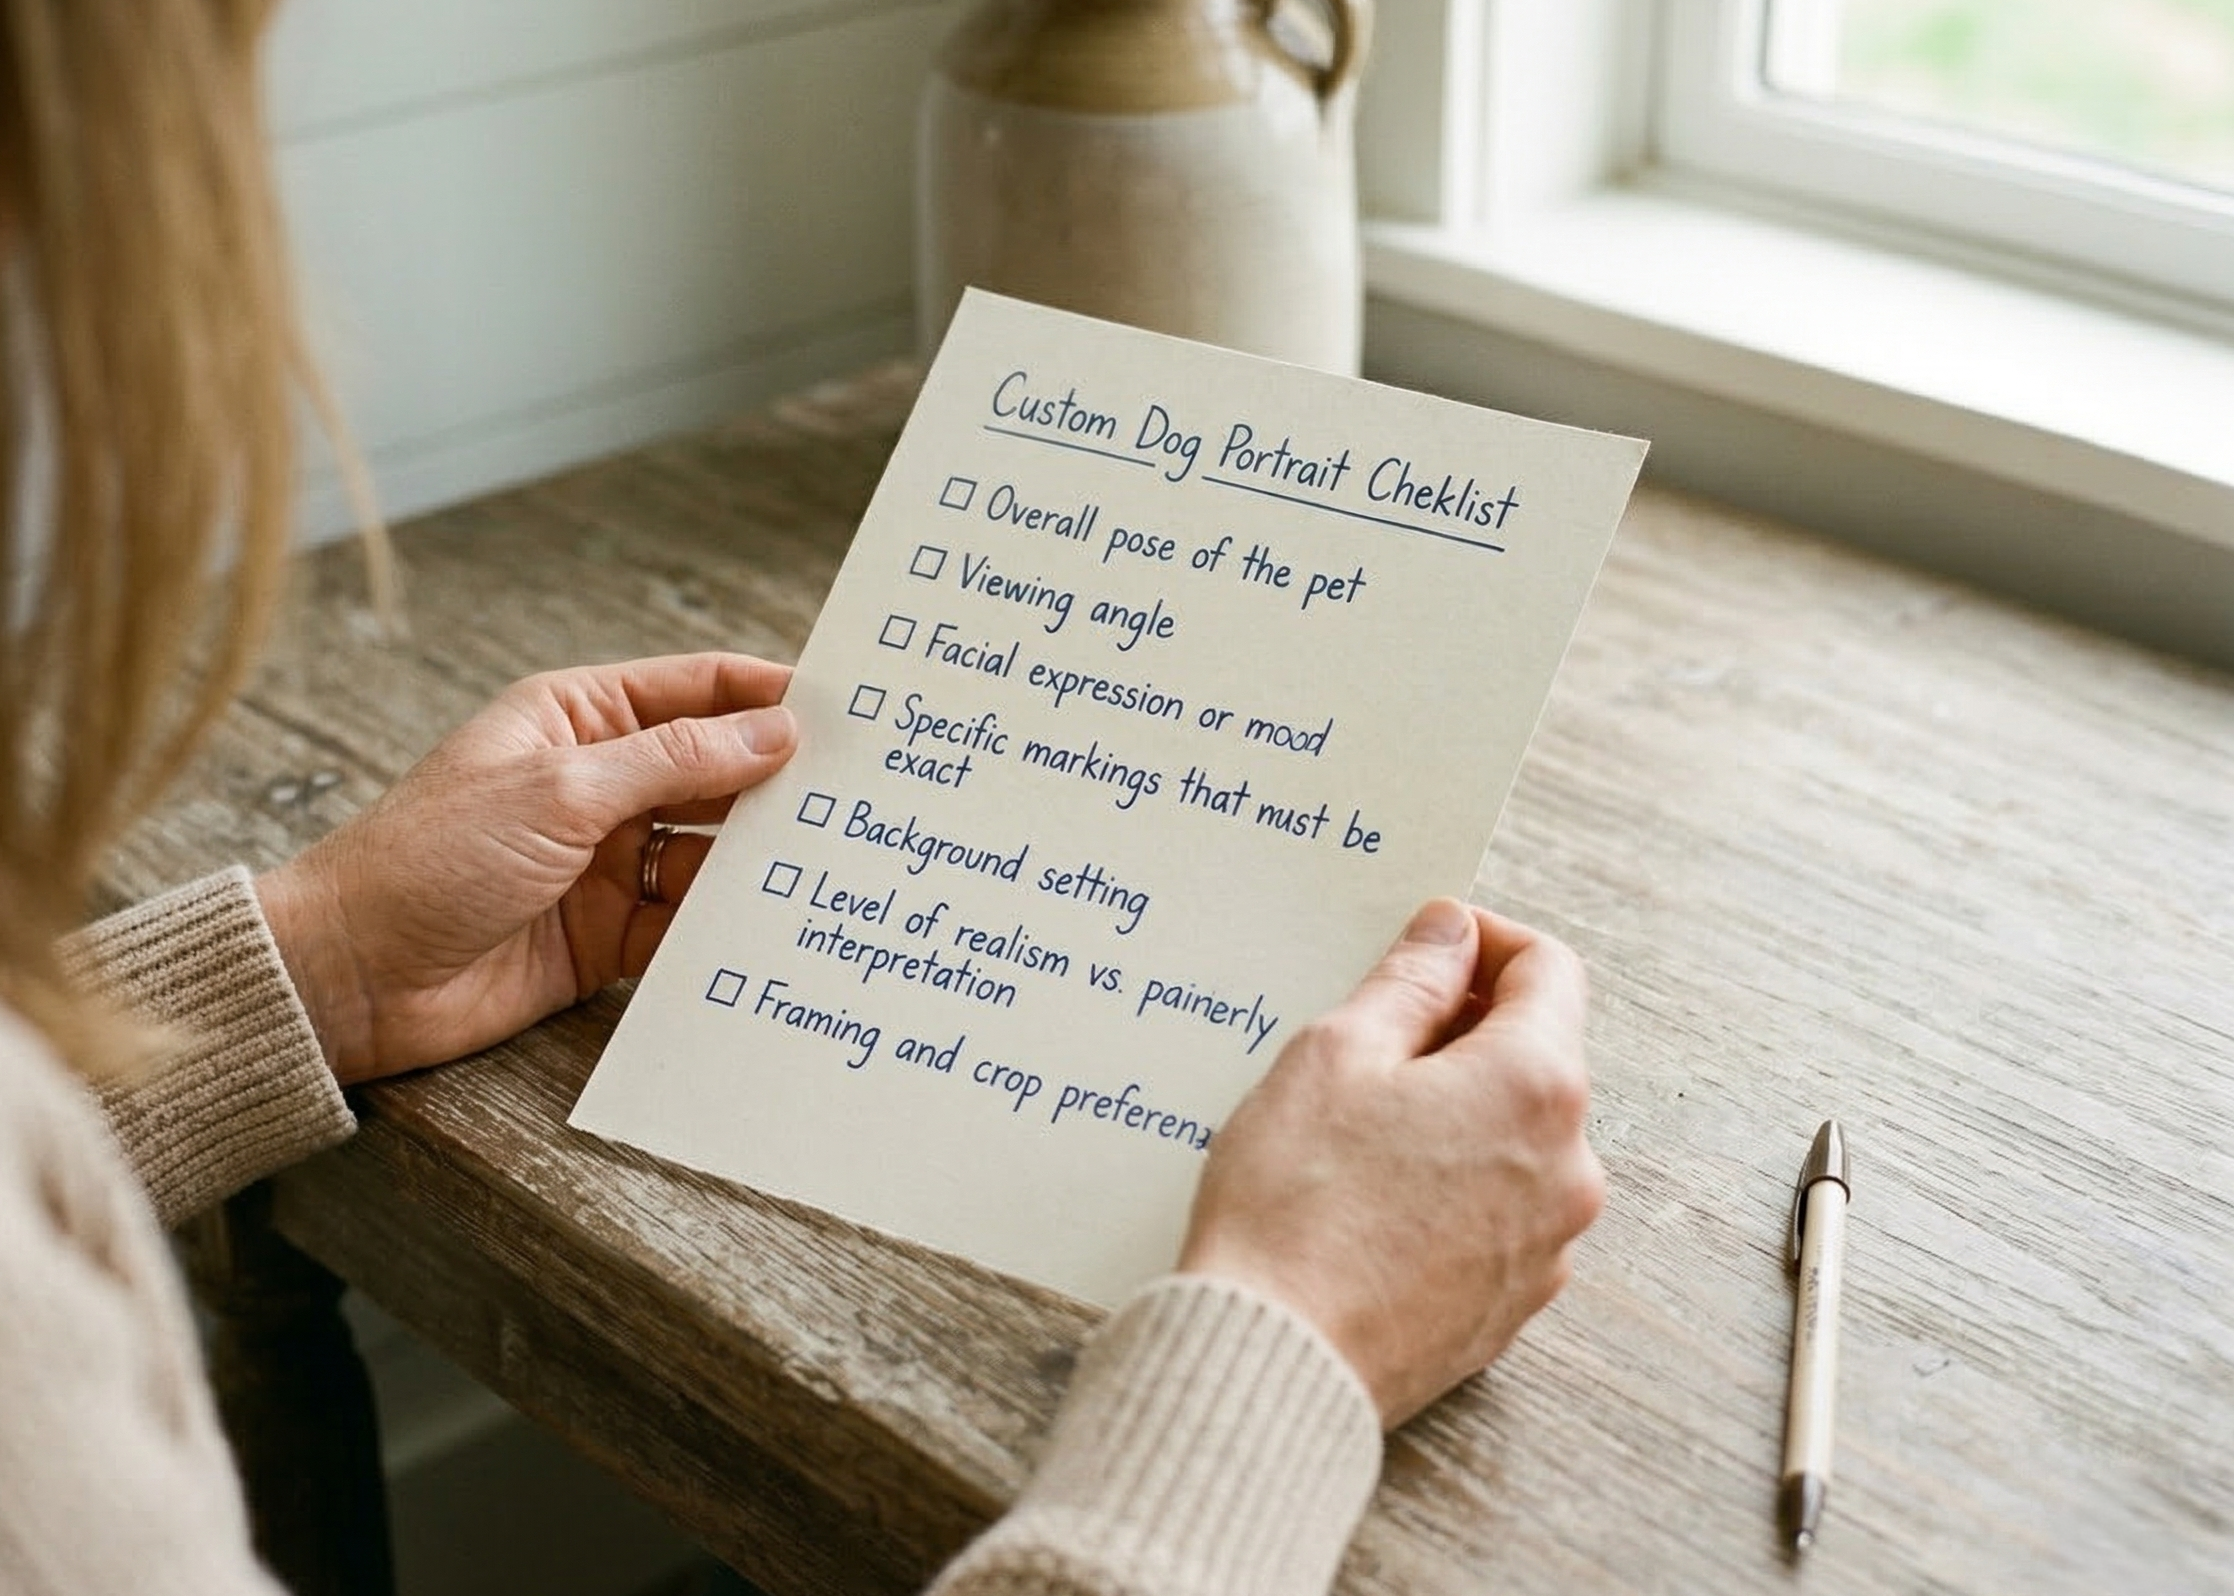 Custom Dog Portrait Cheklist
☐ Overall pose of the pet
☐ Viewing angle
☐ Facial expression or mood
☐ Specific markings that must be
exact
☐ Background setting
☐ Level of realism vs. painerly
interpretation
☐ Framing and crop